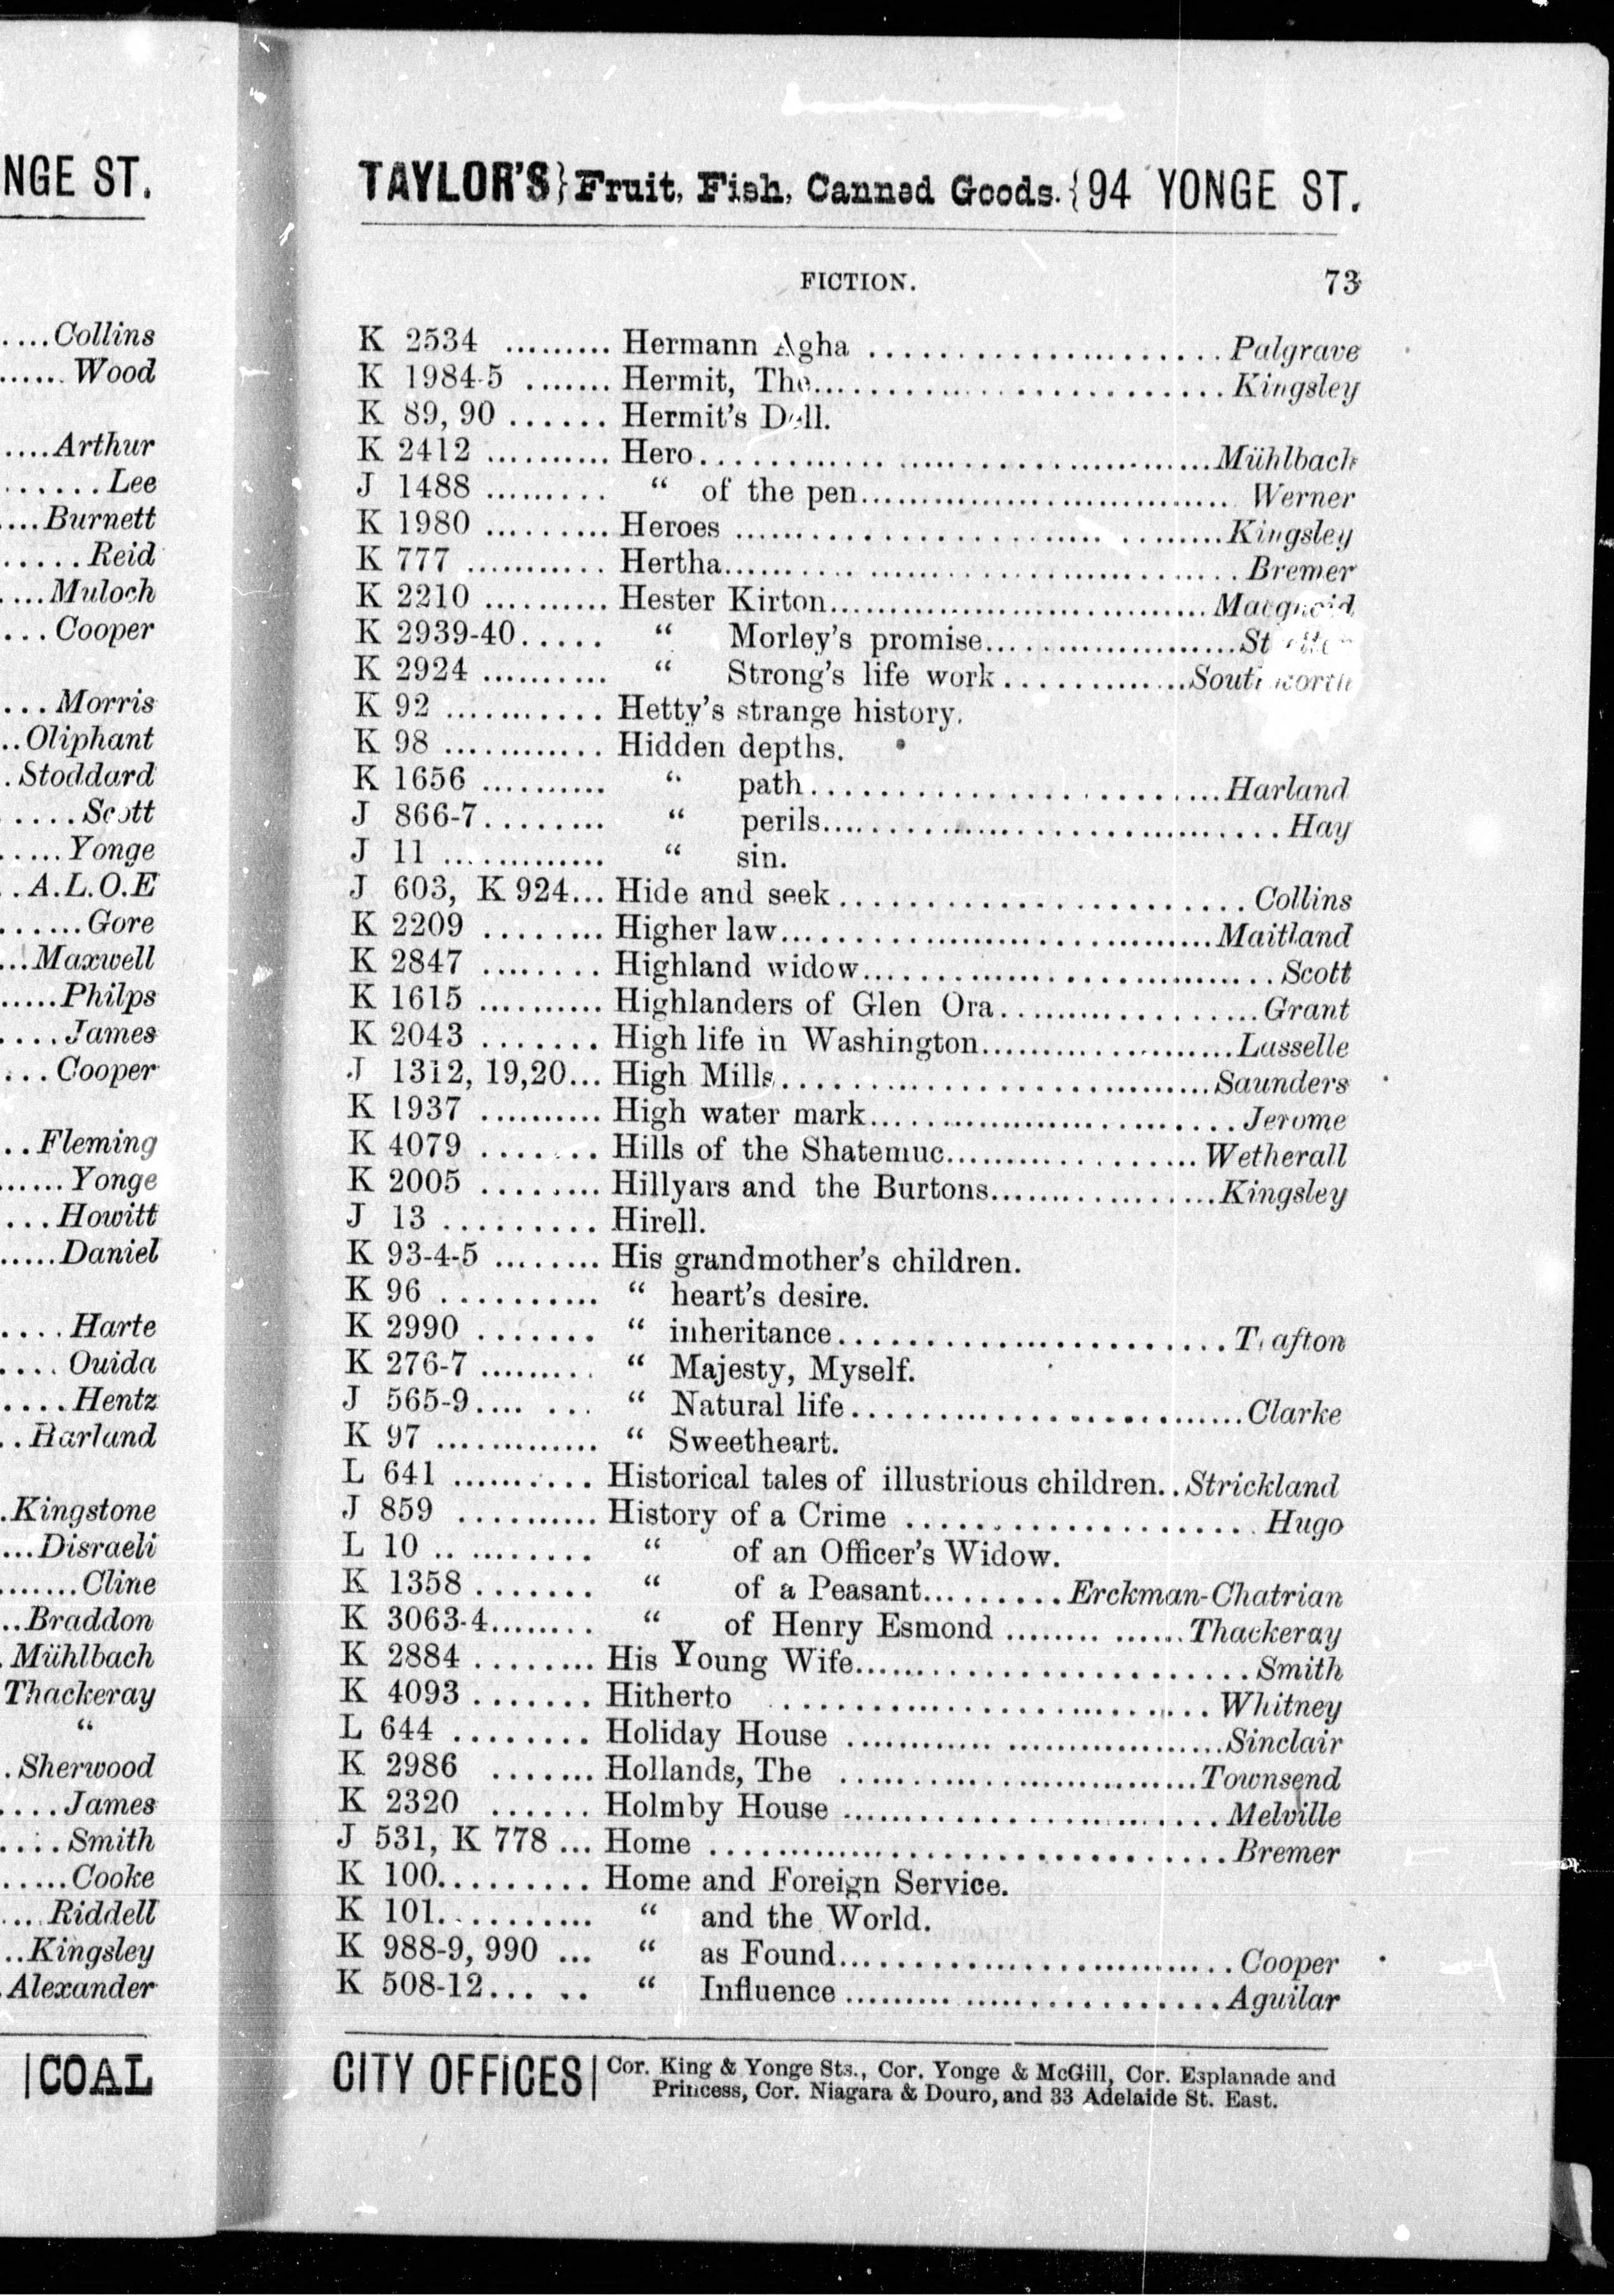 NGE ST.
....Collins
......Wood
....Arthur
.......Lee
....Burnett
......Reid
....Muloch
...Cooper
...Morris
..Oliphant
.Stoddard
.....Scott
.....Yonge
..A.L.O.E
......Gore
...Maxwell
.....Philps
....James
...Cooper
..Fleming
......Yonge
...Howitt
.....Daniel
....Harte
....Ouida
....Hentz
..Harland
.Kingstone
...Disraeli
.......Cline
..Braddon
.Mühlbach
Thackeray
“
.Sherwood
....James
....Smith
.....Cooke
....Riddell
..Kingsley
.Alexander
|COAL
TAYLOR'S} Fruit, Fish, Canned Goods. {94 YONGE ST.
FICTION. 73
K 2534 ......... Hermann Agha ........................ Palgrave
K 1984-5 ....... Hermit, The........................... Kingsley
K 89, 90 ...... Hermit's Dell.
K 2412 .......... Hero.................................. Mühlbach
J 1488 ......... “ of the pen............................. Werner
K 1980 .......... Heroes ............................... Kingsley
K 777 ........... Hertha................................ Bremer
K 2210 .......... Hester Kirton............................. Macquoid
K 2939-40..... “ Morley's promise....................
K 2924 .......... “ Strong's life work............. Southworth
K 92 ........... Hetty's strange history.
K 98 ............ Hidden depths.
K 1656 .......... “ path......................... Harland
J 866-7......... “ perils............................ Hay
J 11 ............. “ sin.
J 603, K 924... Hide and seek......................... Collins
K 2209 ........ Higher law............................. Maitland
K 2847 ........ Highland widow........................... Scott
K 1615 .......... Highlanders of Glen Ora................ Grant
K 2043 ....... High life in Washington.................. Lasselle
J 1312, 19,20... High Mills............................ Saunders
K 1937 .......... High water mark....................... Jerome
K 4079 ....... Hills of the Shatemuc................ Wetherall
K 2005 ........ Hillyars and the Burtons............... Kingsley
J 13 ......... Hirell.
K 93-4-5 ........ His grandmother's children.
K 96 ........... “ heart's desire.
K 2990 ....... “ inheritance......................... Trafton
K 276-7 ......... “ Majesty, Myself.
J 565-9.... ... “ Natural life......................... Clarke
K 97 ............. “ Sweetheart.
L 641 .......... Historical tales of illustrious children.. Strickland
J 859 .......... History of a Crime ..................... Hugo
L 10 .. ........ “ of an Officer's Widow.
K 1358 ....... “ of a Peasant......... Erckman-Chatrian
K 3063-4........ “ of Henry Esmond .............. Thackeray
K 2884 ........ His Young Wife......................... Smith
K 4093 ....... Hitherto ........................... Whitney
L 644 ........ Holiday House ......................... Sinclair
K 2986 ....... Hollands, The ........................ Townsend
K 2320 ...... Holmby House ........................ Melville
J 531, K 778 ... Home ............................... Bremer
K 100......... Home and Foreign Service.
K 101.......... “ and the World.
K 988-9, 990 ... “ as Found......................... Cooper
K 508-12... .. “ Influence ........................ Aguilar
CITY OFFICES| Cor. King & Yonge Sts., Cor. Yonge & McGill, Cor. Esplanade and
Princess, Cor. Niagara & Douro, and 33 Adelaide St. East.